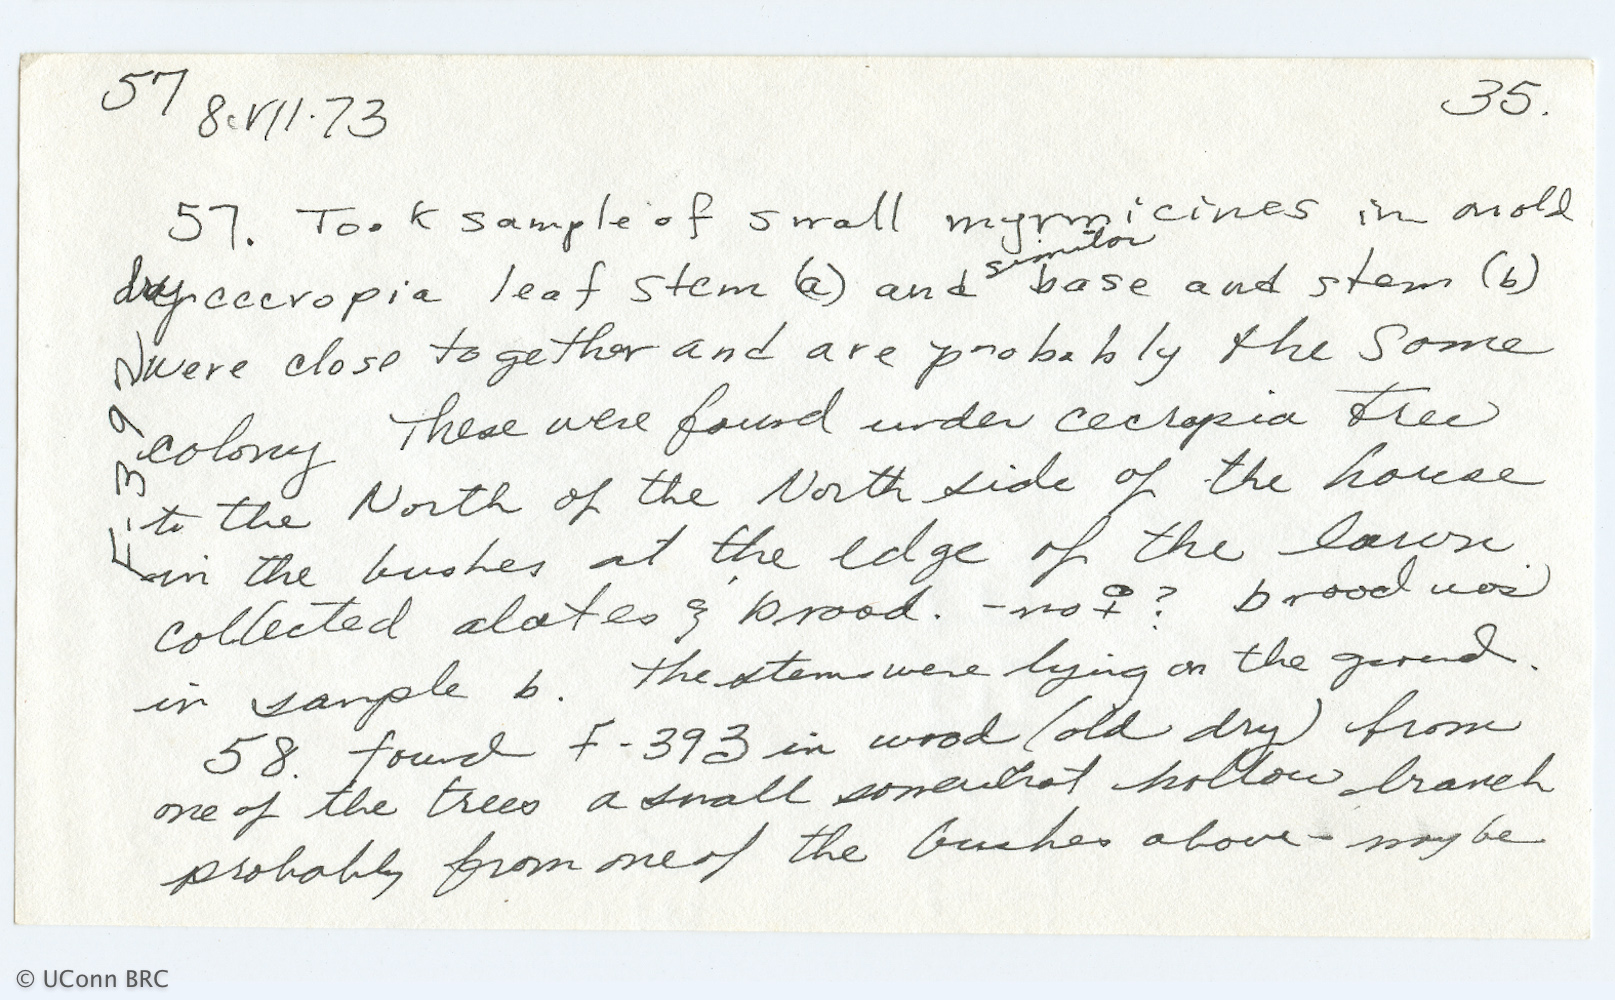 57 8.VII.73 35.
57. Took sample of small myrmicines in an old
dry cecropia leaf stem (a) and similar base and stem (b)
were close together and are probably the same
colony These were found under cecropia tree
to the North of the North side of the house
in the bushes at the edge of the lawn.
collected alates & brood. - no ♀? brood was
in sample b. the stems were lying on the ground.
58. found F-393 in wood (old dry) from
one of the trees a small somewhat hollow branch
probably from one of the bushes above - maybe
F-392
© UConn BRC